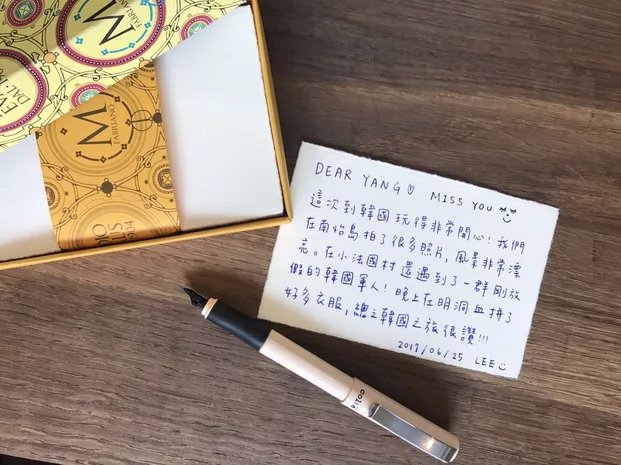 M
FABRIANO
M
FABRIANO
DEAR YANG♡ MISS YOU
這次到韓國玩得非常開心！我們
在南怡島拍了很多照片，風景非常漂
亮。在小法國村還遇到了一群剛放
假的韓國軍人！晚上在明洞血拼了
好多衣服，總之韓國之旅很讚!!!
2017/06/25 LEE